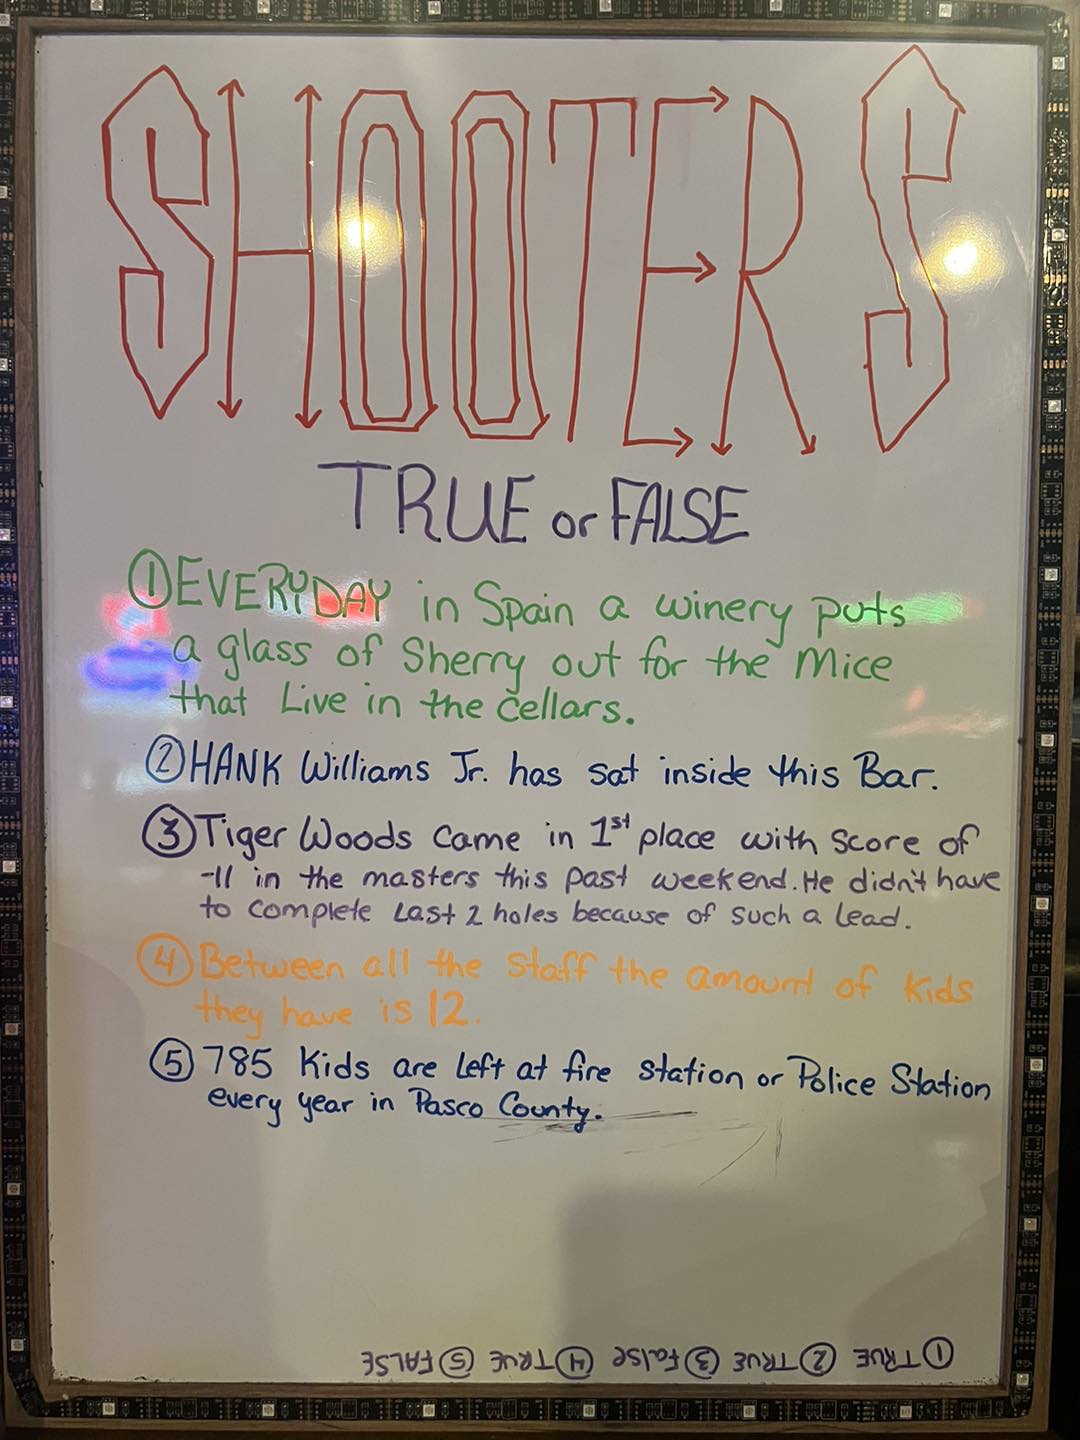 SHOOTERS
TRUE or FALSE
① EVERYDAY in Spain a winery puts
a glass of Sherry out for the Mice
that Live in the cellars.
② HANK Williams Jr. has sat inside this Bar.
③ Tiger Woods came in 1st place with score of
-11 in the masters this past weekend. He didn't have
to complete Last 2 holes because of such a lead.
④ Between all the staff the amount of kids
they have is 12.
⑤ 785 Kids are left at fire station or Police Station
every year in Pasco County.
① TRUE ② TRUE ③ False ④ TRUE ⑤ FALSE